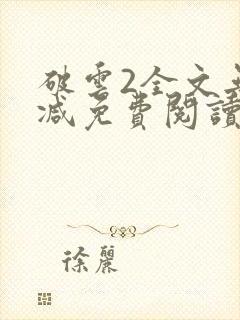 破雲2全文無
減免費閱讀
徐麗